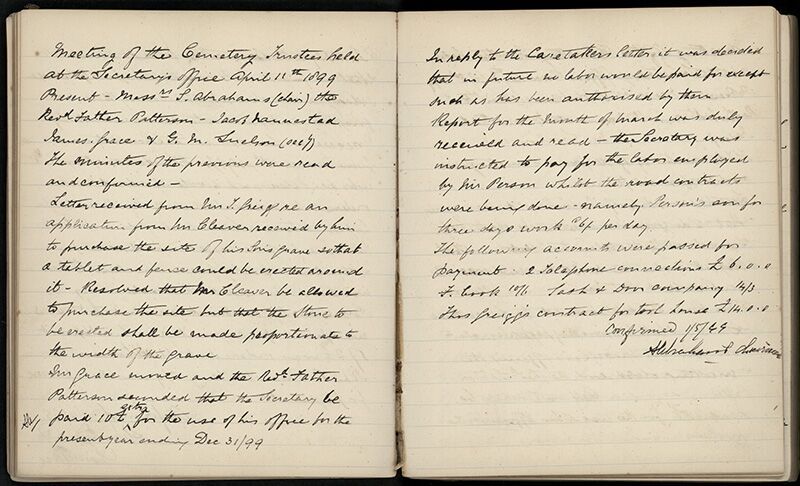 Meeting of the Cemetery Trustees held
at the Secretary's office April 11th 1899
Present - Messrs S. Abrahams (chair) the
Revd Father Patterson - Jacob Nannestad
James Grace & G. M. Snelson (secy)
The minutes of the previous were read
and confirmed -
Letter received from Mr T. Greigg re an
application from Mr Cleaver received by him
to purchase the site of his grave so that
a tablet and fence could be erected around
it - Resolved that Mr Cleaver be allowed
to purchase the site but that the stone to
be erected shall be made proportionate to
the width of the grave
Mr Grace moved and the Revd Father
Patterson seconded that the Secretary be
paid 10£ extra for the use of his office for the
present year ending Dec 31/99
In reply to the Caretakers letter it was decided
that in future no labor would be paid for except
such as has been authorised by them
Report for the month of March was duly
received and read - the Secretary was
instructed to pay for the labor employed
by Mr Person whilst the road contracts
were being done - namely Person's son for
three days work 6/ per day
The following accounts were passed for
payment. 2 Telephone connections £6.0.0
F. Cook 10/6 Sash & Door company 14/3
Thos Greigg's contract for tool house £14.0.0
Confirmed 1/5/99
S Abrahams Chairman